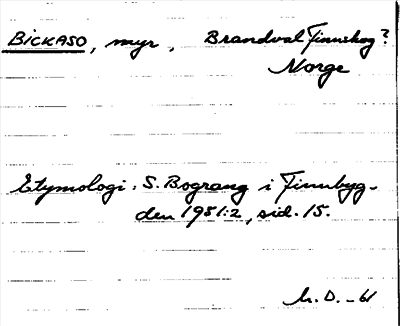 BICKASO, myr, Brandval Finnskog?
Norge
Etymologi: S. Bograng i Finnbyg-
den 1951:2, sid. 15.
h. D. -61